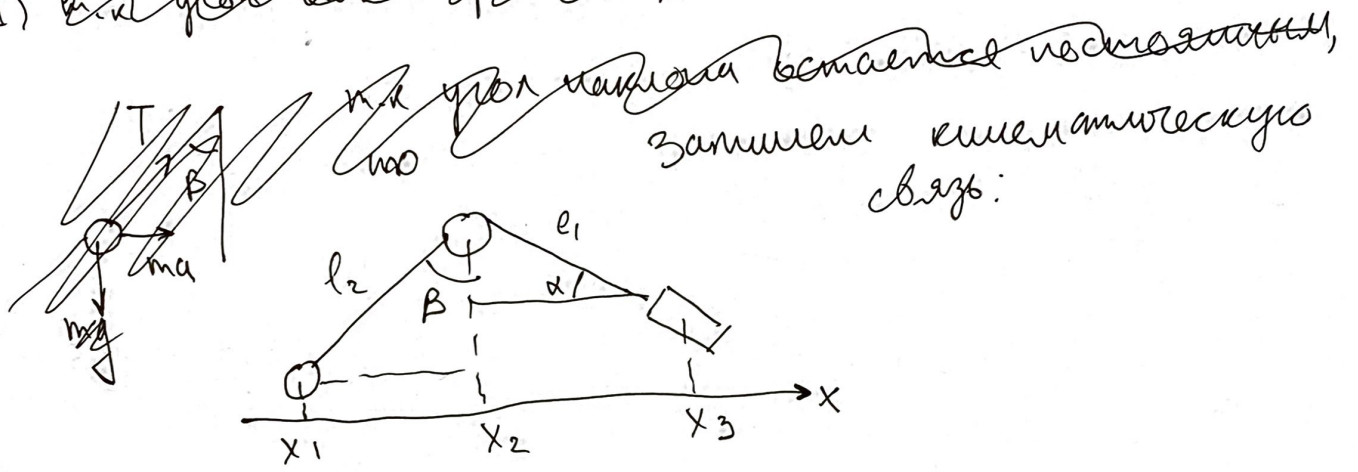 т.к угол наклона остается постоянным,
то
запишем кинематическую
связь:
T
β
ma
mg
l₂
l₁
β
α
x
x1
x2
x3